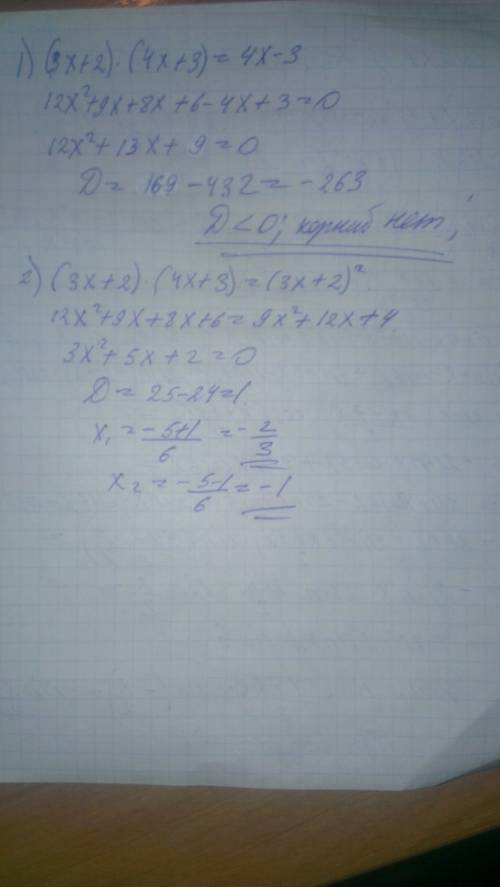 1) (3x+2)·(4x+3)=4x-3
12x²+9x+8x+6-4x+3=0
12x²+13x+9=0
D= 169-432=-263
D<0; корней нет;
2) (3x+2)·(4x+3)=(3x+2)²
12x²+9x+8x+6=9x²+12x+4
3x²+5x+2=0
D=25-24=1
x₁=-5+1/6=-2/3
x₂=-5-1/6=-1